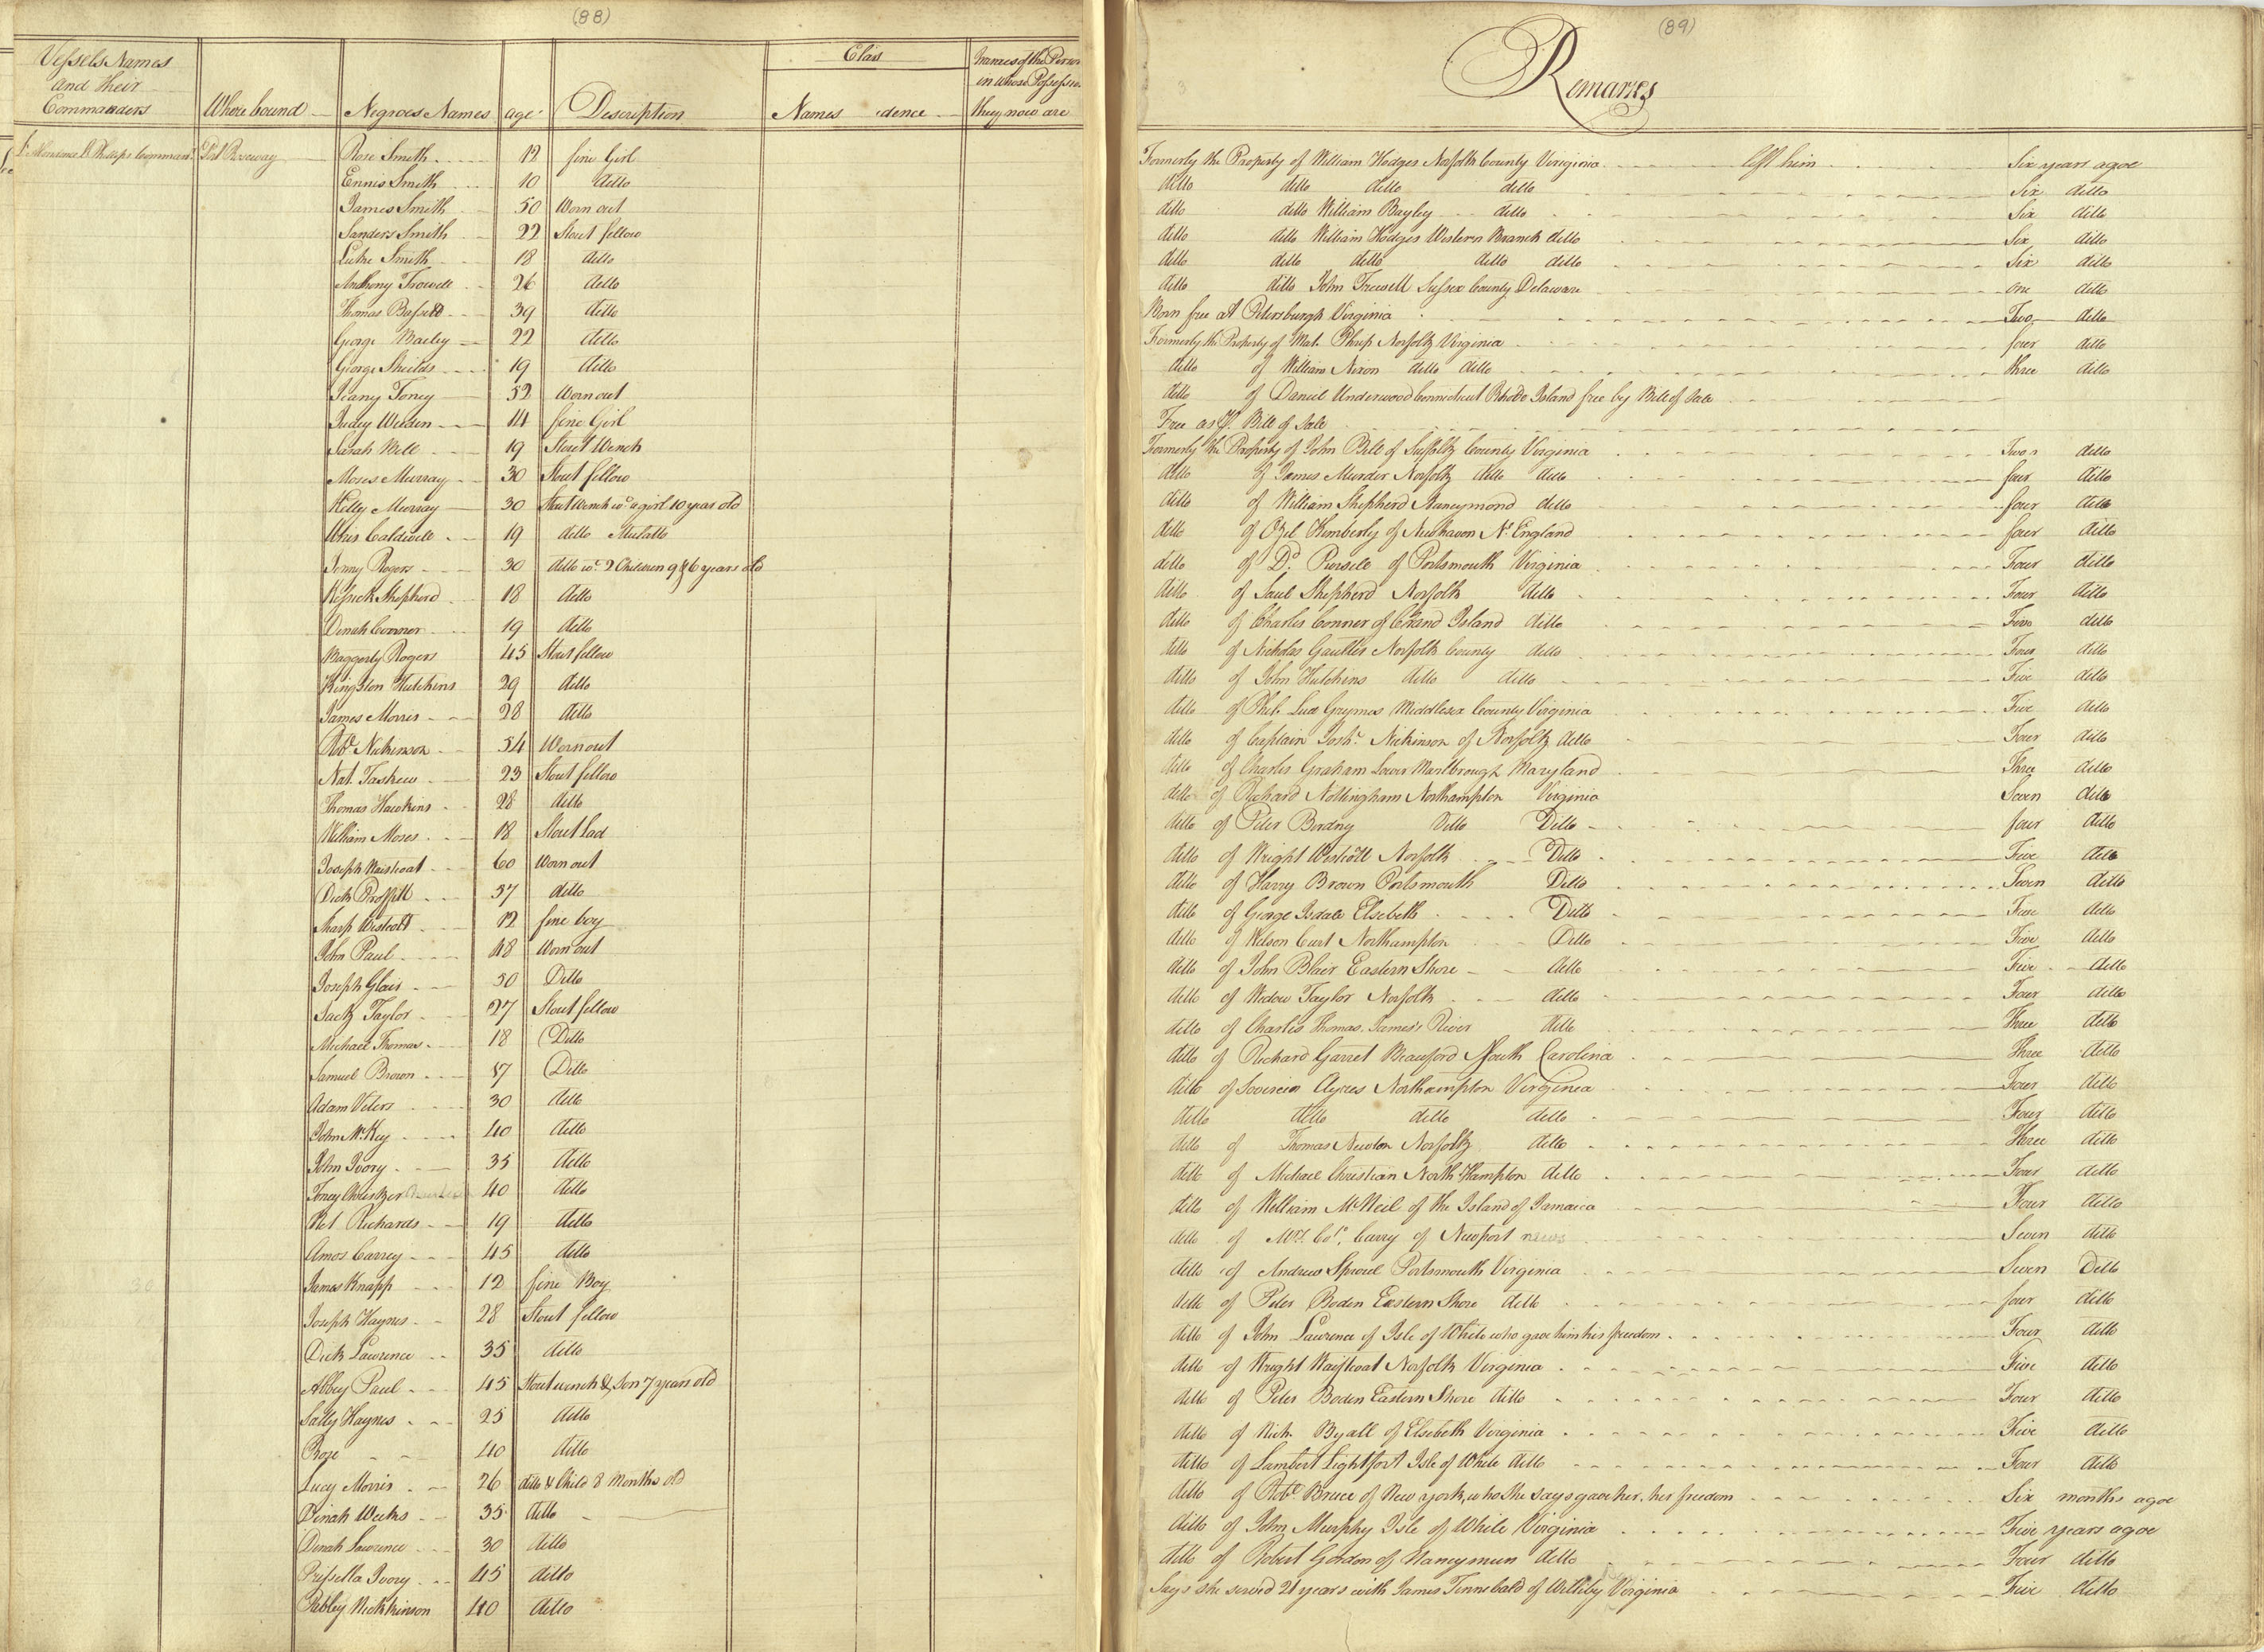 (88)
Vessels Names and their Commanders
Where bound
Negroes Names
age
Description
Claim
Names
dence
Names of the Person in whose Possession they now are
L'Abondance Lt. Phillips Command.
Port Roseway
Rose Smith 12 fine Girl
Ennis Smith 10 ditto
James Smith 50 Worn out
Sanders Smith 22 Stout fellow
Luke Smith 18 ditto
Anthony Trowell 26 ditto
Thomas Bassett 39 ditto
George Bailey 22 ditto
George Shields 19 ditto
Jeany Toney 52 Worn out
Judey Weedon 14 fine Girl
Sarah Bill 19 Stout Wench
Moses Murray 30 Stout fellow
Kelly Murray 30 Stout Wench wt. a girl 10 years old
Caldwell 19 ditto Mulatto
Jenny Rogers 30 ditto wt. 2 Children 9 & 6 years old
Shepherd 18 ditto
Dinah Connor 19 ditto
Baggerly Rogers 45 Stout fellow
Kingston Hutchins 29 ditto
James Morris 28 ditto
Robt. Nickinson 54 Worn out
Nat. Taskew 23 Stout fellow
Thomas Hawkins 28 ditto
William Moses 18 Stout Lad
Joseph Waistcoat 60 Worn out
Dick Proffitt 37 ditto
Sharp Westcott 12 fine boy
John Paul 48 Worn out
Joseph Glair 50 Ditto
Jack Taylor 27 Stout fellow
Michael Thomas 18 Ditto
Samuel Brown 17 Ditto
Adam Veters 30 ditto
John McKey 40 ditto
John Ivory 35 ditto
Toney 40 ditto
Net Richards 19 ditto
Amos Carrey 45 ditto
James Knapp 12 fine Boy
Joseph Haynes 28 Stout fellow
Dick Lawrence 35 ditto
Abbey Paul 45 Stout wench & Son 7 years old
Sally Haynes 25 ditto
Rose 40 ditto
Lucy Morris 26 ditto & Child 8 Months old
Dinah Weeks 35 ditto
Dinah Lawrence 30 ditto
Prissella Ivory 45 ditto
Pebley Nickkinson 40 ditto
(89)
Remarks
Formerly the Property of William Hodges Norfolk County Virginia left him Six years agoe
ditto ditto ditto ditto Six ditto
ditto ditto William Bayley ditto Six ditto
ditto ditto William Hodges Western Branch ditto Six ditto
ditto ditto ditto ditto ditto Six ditto
ditto ditto John Trewell Sussex County Delaware One ditto
Born free at Petersburgh Virginia Two ditto
Formerly the Property of Mat. Phrip Norfolk Virginia four ditto
ditto of William Nixon ditto ditto three ditto
ditto of Daniel Underwood Connecticut Rhode Island free by Bill of Sale
Free as Pr. Bill of Sale
Formerly the Property of John Bill of Suffolk County Virginia Two ditto
ditto of James Murder Norfolk ditto ditto four ditto
ditto of William Shepherd Nancymond ditto four ditto
ditto of Ozel Kimberly of Newhaven N. England four ditto
ditto of Dr. Pursele of Portsmouth Virginia Four ditto
ditto of Saul Shepherd Norfolk ditto Four ditto
ditto of Charles Conner of Crand Island ditto Two ditto
ditto of Nicholas Gautier Norfolk County ditto Four ditto
ditto of John Hutchins ditto ditto Five ditto
ditto of Phil. Lud. Grymas Middlesex County Virginia Five ditto
ditto of Captain Joshr. Nickinson of Norfolk ditto Four ditto
ditto of Charles Graham Lower Marlbrough Maryland Three ditto
ditto of Richard Nottingham Northampton Virginia Seven ditto
ditto of Peter Bordny Ditto Ditto four ditto
ditto of Wright Westcott Norfolk Ditto Five ditto
ditto of Harry Brown Portsmouth Ditto Seven ditto
ditto of George Isdale Elsebeth Ditto Five ditto
ditto of Wilson Curt Northampton Ditto Five ditto
ditto of John Blair Eastern Shore ditto Five ditto
ditto of Widow Taylor Norfolk ditto Four ditto
ditto of Charles Thomas James's River ditto Three ditto
ditto of Richard Garret Beauford South Carolina Three ditto
ditto of Ayres Northampton Virginia Four ditto
ditto ditto ditto ditto Four ditto
ditto of Thomas Newton Norfolk ditto Three ditto
ditto of Michael Christian North Hampton ditto Four ditto
ditto of William McNeil of the Island of Jamaica Four ditto
ditto of Mrs. Col. Carry of Newport news Seven ditto
ditto of Andrew Sprowl Portsmouth Virginia Seven Ditto
ditto of Peter Boden Eastern Shore ditto four ditto
ditto of John Lawrence of Isle of White who gave him his freedom Four ditto
ditto of Wright Waistcoat Norfolk Virginia Five ditto
ditto of Peter Boden Eastern Shore ditto Four ditto
ditto of Nich. Byall of Elsebeth Virginia Five ditto
ditto of Lambert Lightfort Isle of White ditto Four ditto
ditto of Robt. Bruce of New york, who She says gave her, her freedom Six months agoe
ditto of John Murphy Isle of White Virginia Five years agoe
ditto of Robert Gordon of Nancymun ditto Four ditto
Says she served 21 years with James Tinnebald of Virginia Five ditto